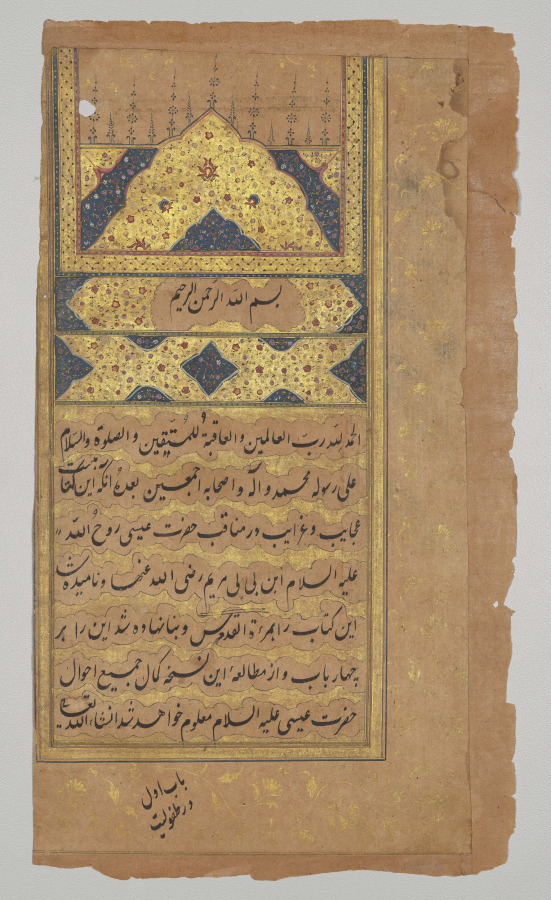 بسم الله الرحمن الرحیم
الحمد لله رب العالمین و العاقبة للمتقین و الصلوة والسلام
علی رسوله محمد و آله و اصحابه اجمعین بعده آنکه این کتا
عجایب و غرایب در مناقب حضرت عیسی روح الله
علیه السلام ابن بی بی مریم رضی الله عنها و نامیده شد
این کتاب را بمرءة القدس و بنا نهاده شد این را بر
چهار باب و از مطالعهٔ این نسخه کمال جمیع احوال
حضرت عیسی علیه السلام معلوم خواهد شد انشاء الله تعالی
باب اول
در طفولیت